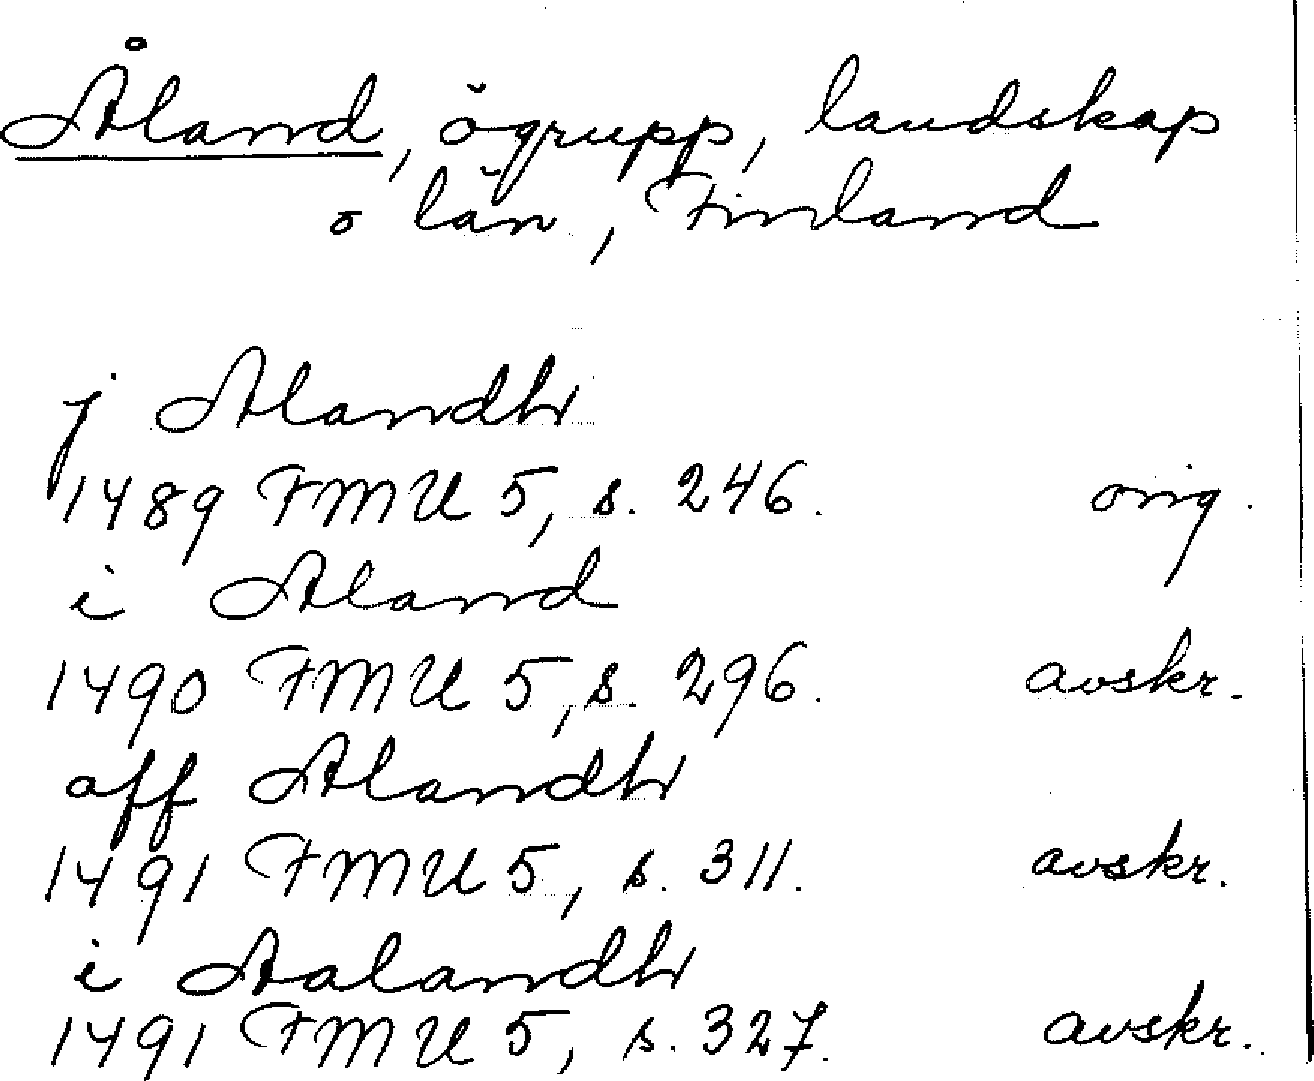 Åland, ögrupp, landskap
o län, Finland
j Alandh
1489 FMU 5, s. 246. orig.
i Aland
1490 FMU 5, s. 296. avskr.
aff Alandh
1491 FMU 5, s. 311. avskr.
i Aalandh
1491 FMU 5, s. 327. avskr.